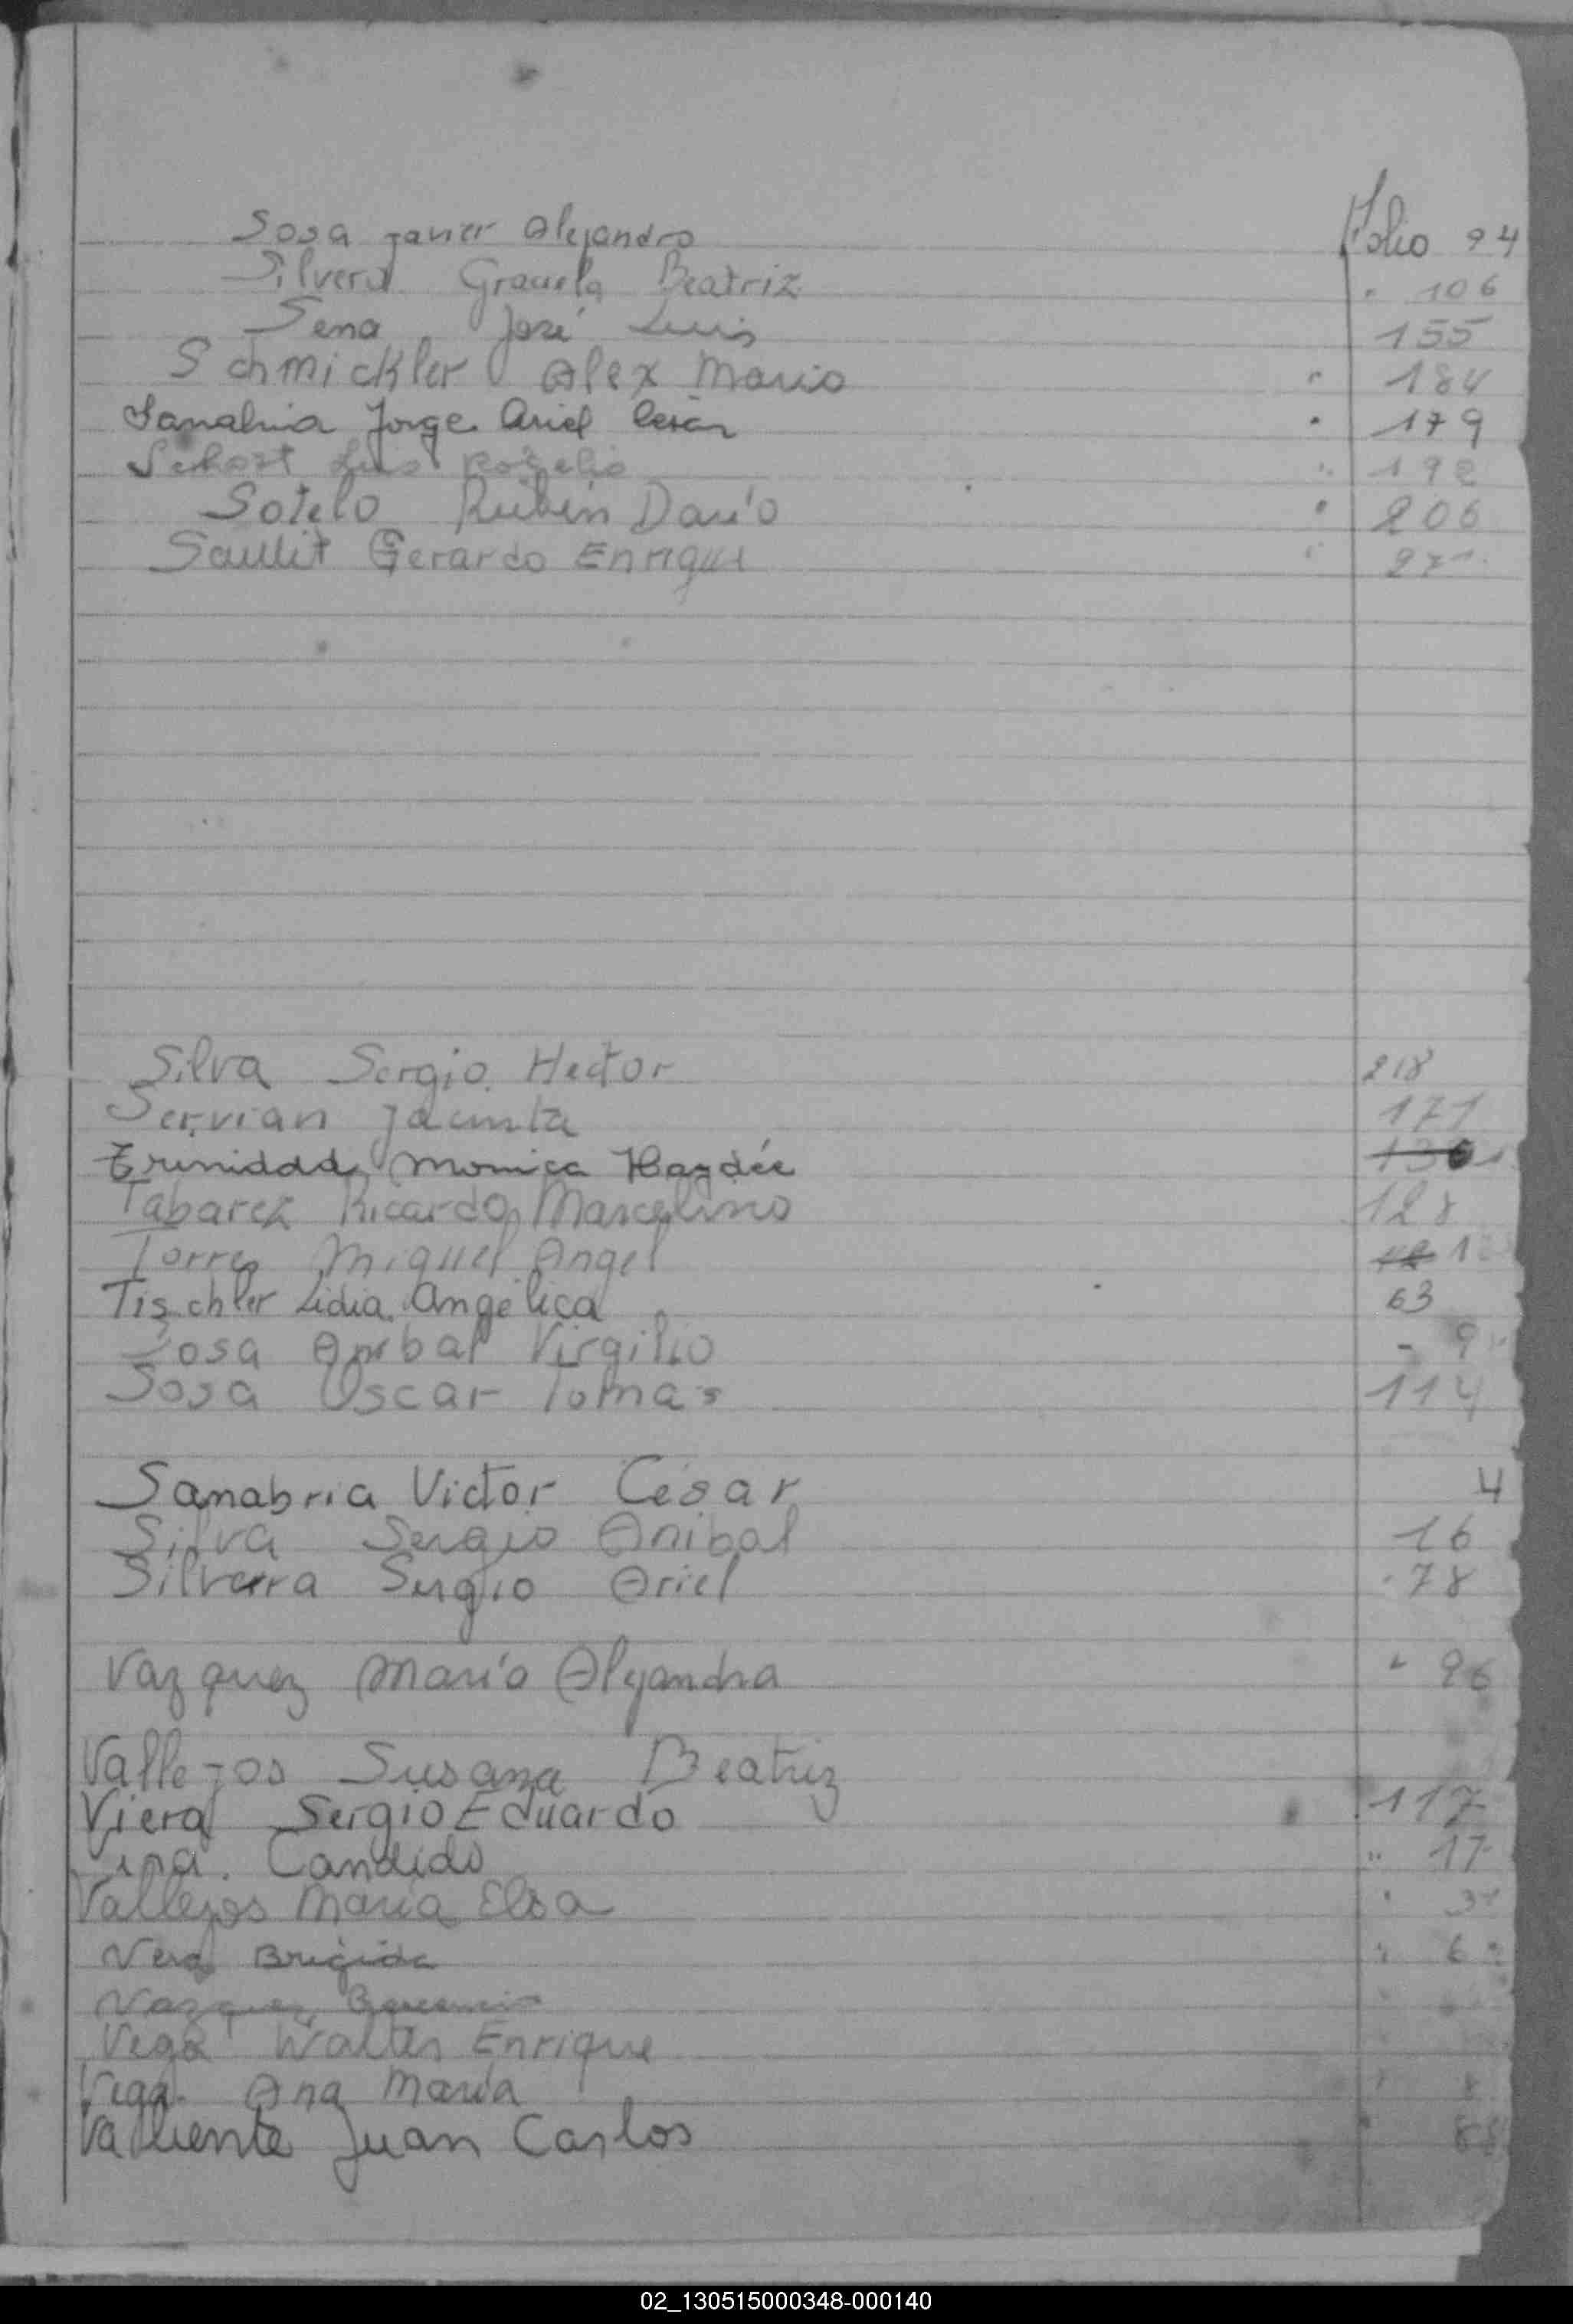 Sosa Javier Alejandro Folio 94
Silvera Graciela Beatriz " 106
Sena José Luis 155
Schmickler Alex Mario " 184
Sanabria Jorge Ariel César " 179
Schort Luis Rogelio " 192
Sotelo Rubén Darío " 206
Saullit Gerardo Enrique "
Silva Sergio Hector 218
Servian Jacinta 171
Trinidad Monica Haydée
Tabarez Ricardo Marcelino 128
Torres Miguel Angel
Tischler Lidia Angélica 63
Sosa Anibal Virgilio
Sosa Oscar Tomas 114
Sanabria Victor César 4
Silva Sergio Anibal 16
Silveira Sergio Ariel 78
Vazquez María Alejandra " 96
Vallejos Susana Beatriz
Viera Sergio Eduardo 117
Candido " 17
Vallejos María Elsa "
Vera Brigida "
Vazquez
Vega Walter Enrique
Vega Ana María
Valiente Juan Carlos
02_130515000348-000140